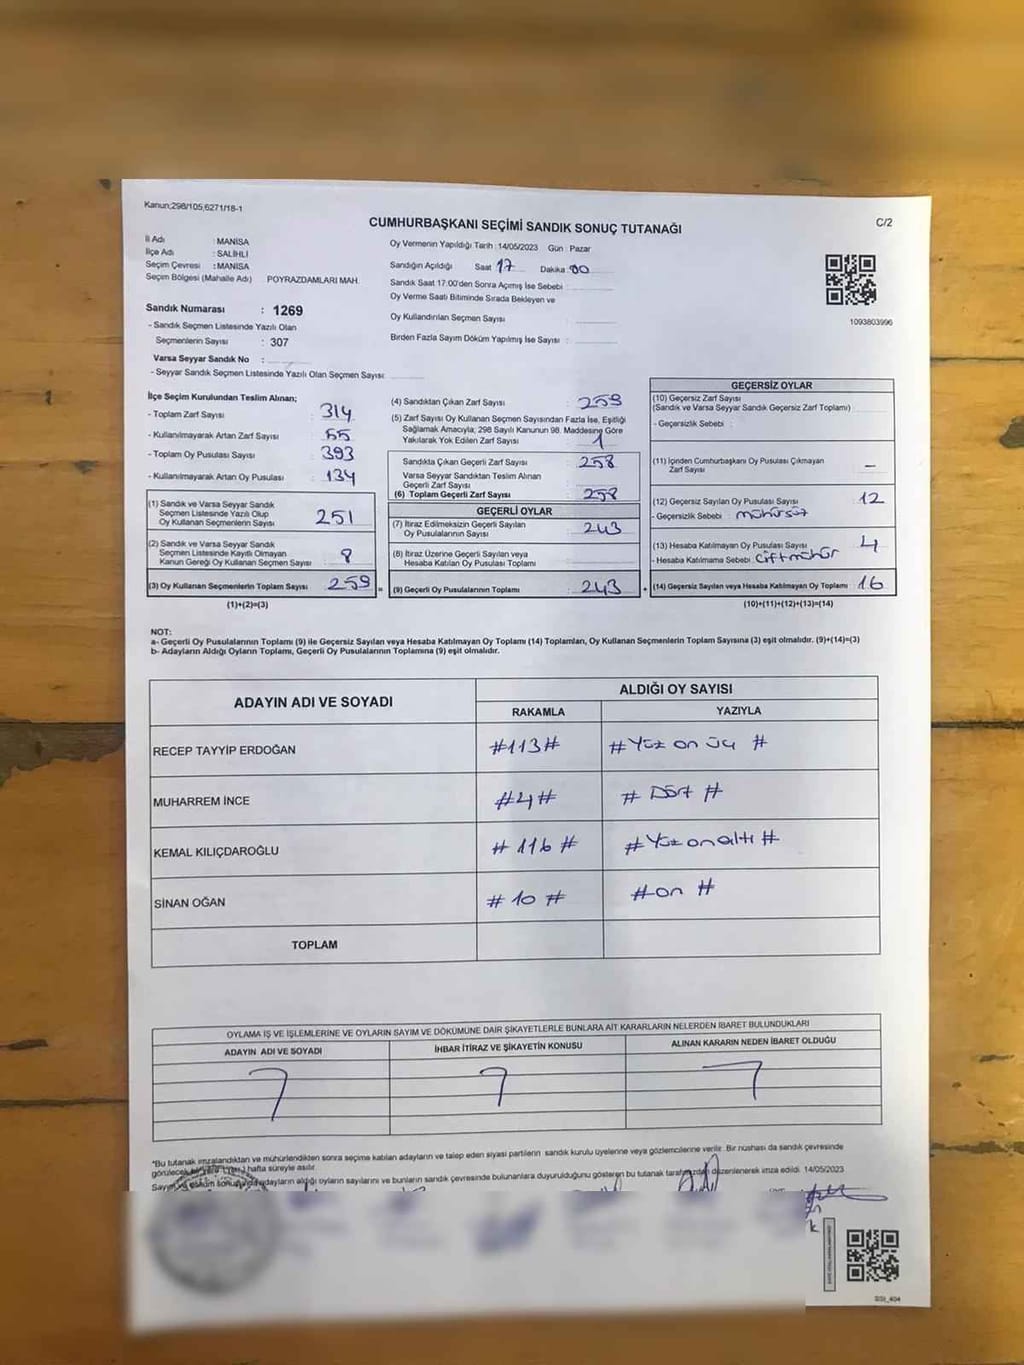 Kanun;298/105,6271/18-1
CUMHURBAŞKANI SEÇİMİ SANDIK SONUÇ TUTANAĞI
C/2
İl Adı : MANİSA
İlçe Adı : SALİHLİ
Seçim Çevresi : MANİSA
Seçim Bölgesi (Mahalle Adı) POYRAZDAMLARI MAH.
Sandık Numarası : 1269
- Sandık Seçmen Listesinde Yazılı Olan
Seçmenlerin Sayısı : 307
Varsa Seyyar Sandık No :
- Seyyar Sandık Seçmen Listesinde Yazılı Olan Seçmen Sayısı:
Oy Vermenin Yapıldığı Tarih : 14/05/2023 Gün : Pazar
Sandığın Açıldığı Saat 17 Dakika 00
Sandık Saat 17:00'den Sonra Açımış İse Sebebi :
Oy Verme Saati Bitiminde Sırada Bekleyen ve
Oy Kullandırılan Seçmen Sayısı :
Birden Fazla Sayım Döküm Yapılmış İse Sayısı :
1093803996
İlçe Seçim Kurulundan Teslim Alınan;
- Toplam Zarf Sayısı : 314
- Kullanılmayarak Artan Zarf Sayısı : 55
- Toplam Oy Pusulası Sayısı : 393
- Kullanılmayarak Artan Oy Pusulası : 134
(1) Sandık ve Varsa Seyyar Sandık
Seçmen Listesinde Yazılı Olup
Oy Kullanan Seçmenlerin Sayısı : 251
(2) Sandık ve Varsa Seyyar Sandık
Seçmen Listesinde Kayıtlı Olmayan
Kanun Gereği Oy Kullanan Seçmen Sayısı : 8
(3) Oy Kullanan Seçmenlerin Toplam Sayısı : 259
(1)+(2)=(3)
(4) Sandıktan Çıkan Zarf Sayısı : 259
(5) Zarf Sayısı Oy Kullanan Seçmen Sayısından Fazla İse, Eşitliği
Sağlamak Amacıyla; 298 Sayılı Kanunun 98. Maddesine Göre
Yakılarak Yok Edilen Zarf Sayısı : 1
Sandıkta Çıkan Geçerli Zarf Sayısı : 258
Varsa Seyyar Sandıktan Teslim Alınan
Geçerli Zarf Sayısı :
(6) Toplam Geçerli Zarf Sayısı : 258
GEÇERLİ OYLAR
(7) İtiraz Edilmeksizin Geçerli Sayılan
Oy Pusulalarının Sayısı : 243
(8) İtiraz Üzerine Geçerli Sayılan veya
Hesaba Katılan Oy Pusulası Toplamı :
(9) Geçerli Oy Pusulalarının Toplamı : 243
GEÇERSİZ OYLAR
(10) Geçersiz Zarf Sayısı
(Sandık ve Varsa Seyyar Sandık Geçersiz Zarf Toplamı) :
- Geçersizlik Sebebi :
(11) İçinden Cumhurbaşkanı Oy Pusulası Çıkmayan
Zarf Sayısı : —
(12) Geçersiz Sayılan Oy Pusulası Sayısı : 12
- Geçersizlik Sebebi : mühürsüz
(13) Hesaba Katılmayan Oy Pusulası Sayısı : 4
- Hesaba Katılmama Sebebi : Çift mühür
(14) Geçersiz Sayılan veya Hesaba Katılmayan Oy Toplamı : 16
(10)+(11)+(12)+(13)=(14)
NOT:
a- Geçerli Oy Pusulalarının Toplamı (9) ile Geçersiz Sayılan veya Hesaba Katılmayan Oy Toplamı (14) Toplamları, Oy Kullanan Seçmenlerin Toplam Sayısına (3) eşit olmalıdır. (9)+(14)=(3)
b- Adayların Aldığı Oyların Toplamı, Geçerli Oy Pusulalarının Toplamına (9) eşit olmalıdır.
ADAYIN ADI VE SOYADI
ALDIĞI OY SAYISI
RAKAMLA YAZIYLA
RECEP TAYYİP ERDOĞAN #113# #Yüz on üç #
MUHARREM İNCE #4# # Dört #
KEMAL KILIÇDAROĞLU # 116 # #Yüz on altı #
SİNAN OĞAN # 10 # #on #
TOPLAM
OYLAMA İŞ VE İŞLEMLERİNE VE OYLARIN SAYIM VE DÖKÜMÜNE DAİR ŞİKAYETLERLE BUNLARA AİT KARARLARIN NELERDEN İBARET BULUNDUKLARI
ADAYIN ADI VE SOYADI İHBAR İTİRAZ VE ŞİKAYETİN KONUSU ALINAN KARARIN NEDEN İBARET OLDUĞU
*Bu tutanak imzalandıktan ve mühürlendikten sonra seçime katılan adayların ve talep eden siyasi partilerin sandık kurulu üyelerine veya gözlemcilerine verilir. Bir nüshası da sandık çevresinde
görülecek bir yere (...) hafta süreyle asılır.
adayların aldığı oyların sayılarını ve bunların sandık çevresinde bulunanlara duyurulduğunu gösteren bu tutanak düzenlenerek imza edildi. 14/05/2023